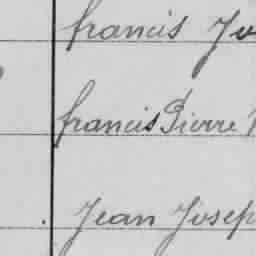 francis Jo
francis Pierre
Jean Joseph